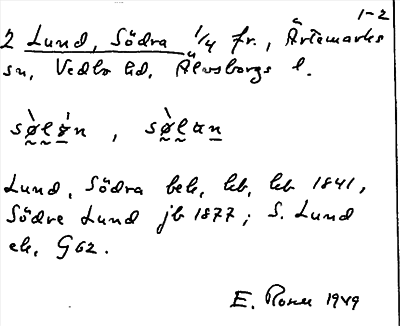 1-2
2 Lund, Södra 1/4 fr., Ärtemarks
sn, Vedbo hd, Älvsborgs l.
Lund, Södra beb, hb, hb 1841,
Södre Lund jb 1877; S. Lund
ek, G62.
E. 1949